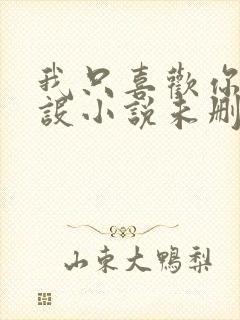 我只喜歡你
設小說未刪
山東大鴨梨